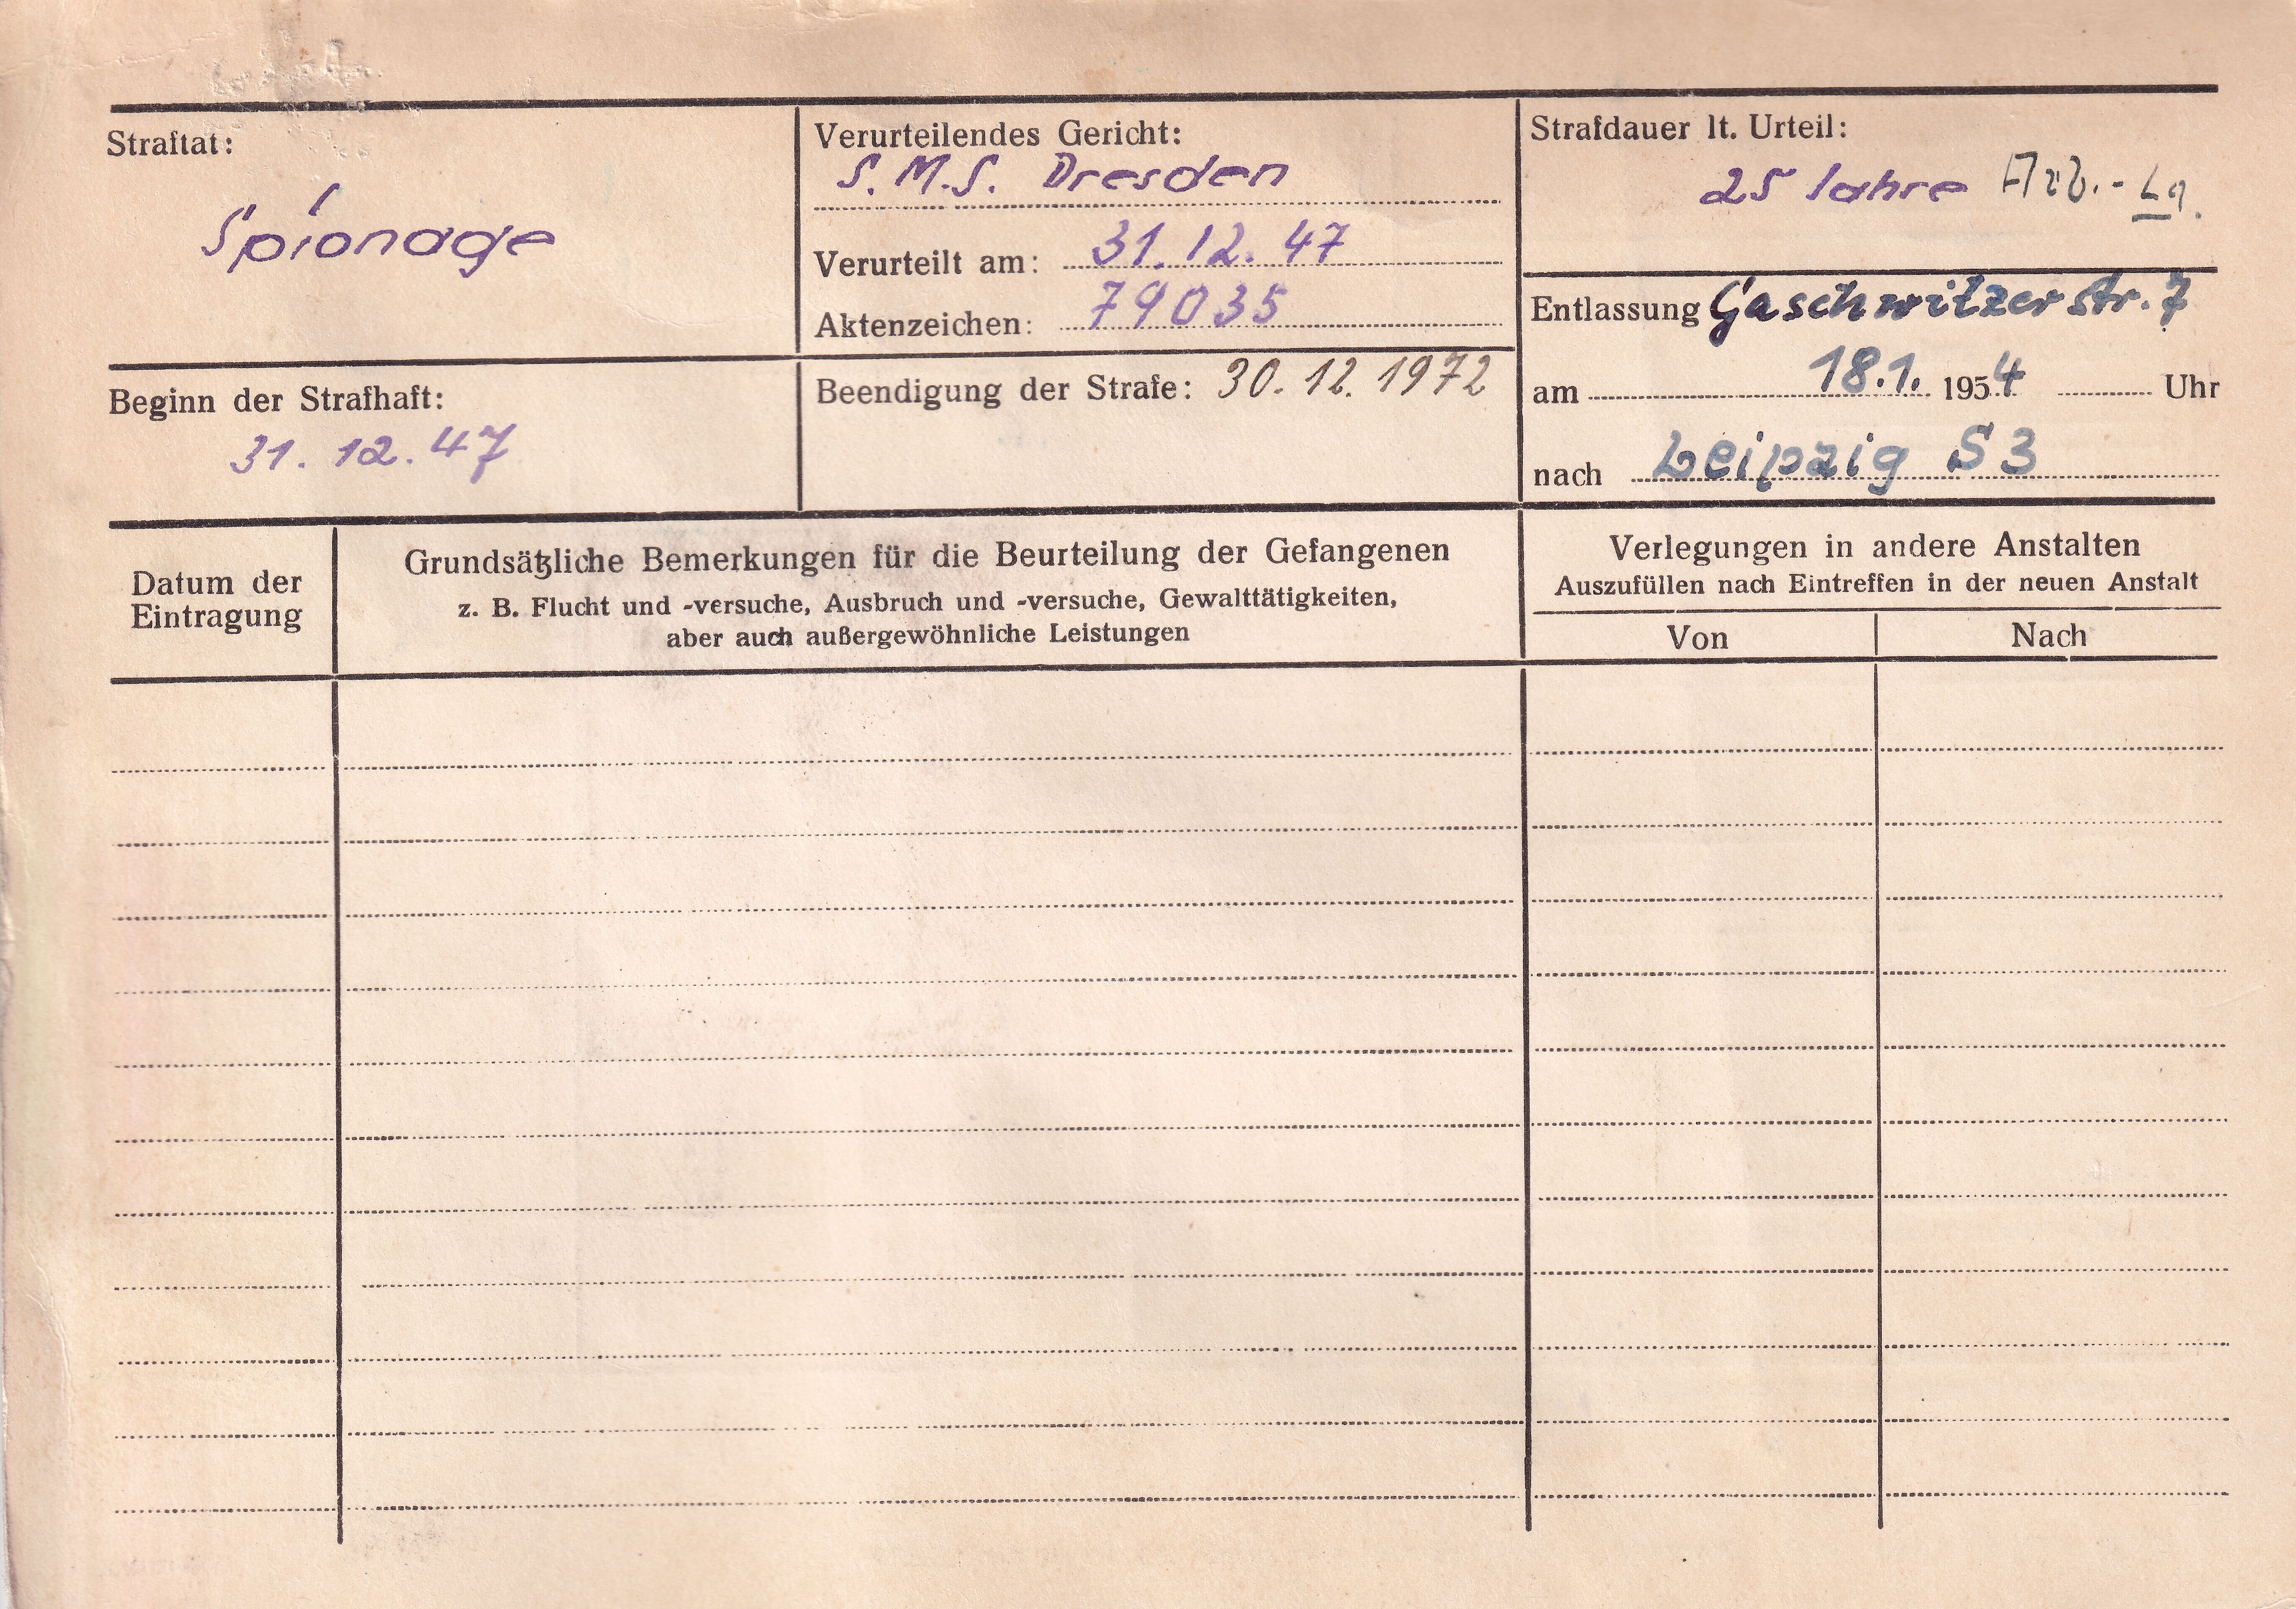 Straftat:
Spionage
Verurteilendes Gericht:
S.M.S. Dresden
Verurteilt am: 31.12.47
Aktenzeichen: 79035
Strafdauer lt. Urteil:
25 Jahre Arb.-Lg.
Entlassung Gaschwitzerstr. 7
am 18.1. 1954 Uhr
nach Leipzig S 3
Beginn der Strafhaft:
31.12.47
Beendigung der Strafe: 30.12.1972
Datum der
Eintragung
Grundsätzliche Bemerkungen für die Beurteilung der Gefangenen
z. B. Flucht und -versuche, Ausbruch und -versuche, Gewalttätigkeiten,
aber auch außergewöhnliche Leistungen
Verlegungen in andere Anstalten
Auszufüllen nach Eintreffen in der neuen Anstalt
Von
Nach